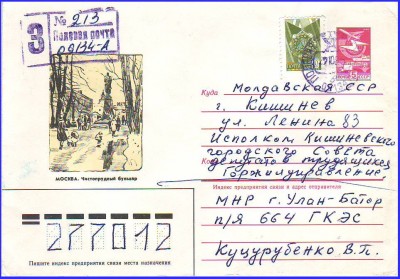 З
№ 213
Полевая почта
09134-А
Куда Молдавская ССР
г. Кишинев
ул. Ленина 83
Исполком Кишиневского
городского Совета
депутатов трудящихся
Горжилуправление
МОСКВА. Чистопрудный бульвар
Индекс предприятия связи и адрес отправителя
МНР г. Улан-Батор
п/я 664 ГКЭС
Куцурубенко В.П.
277012
Пишите индекс предприятия связи места назначения